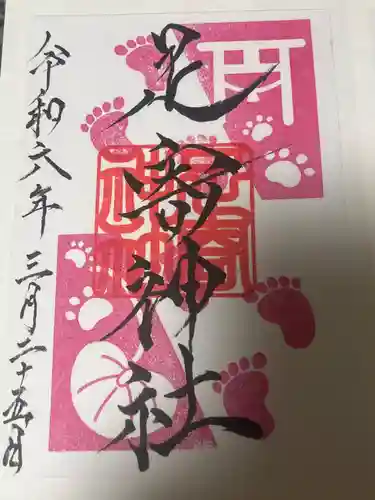 足寄神社
令和六年三月二十五日